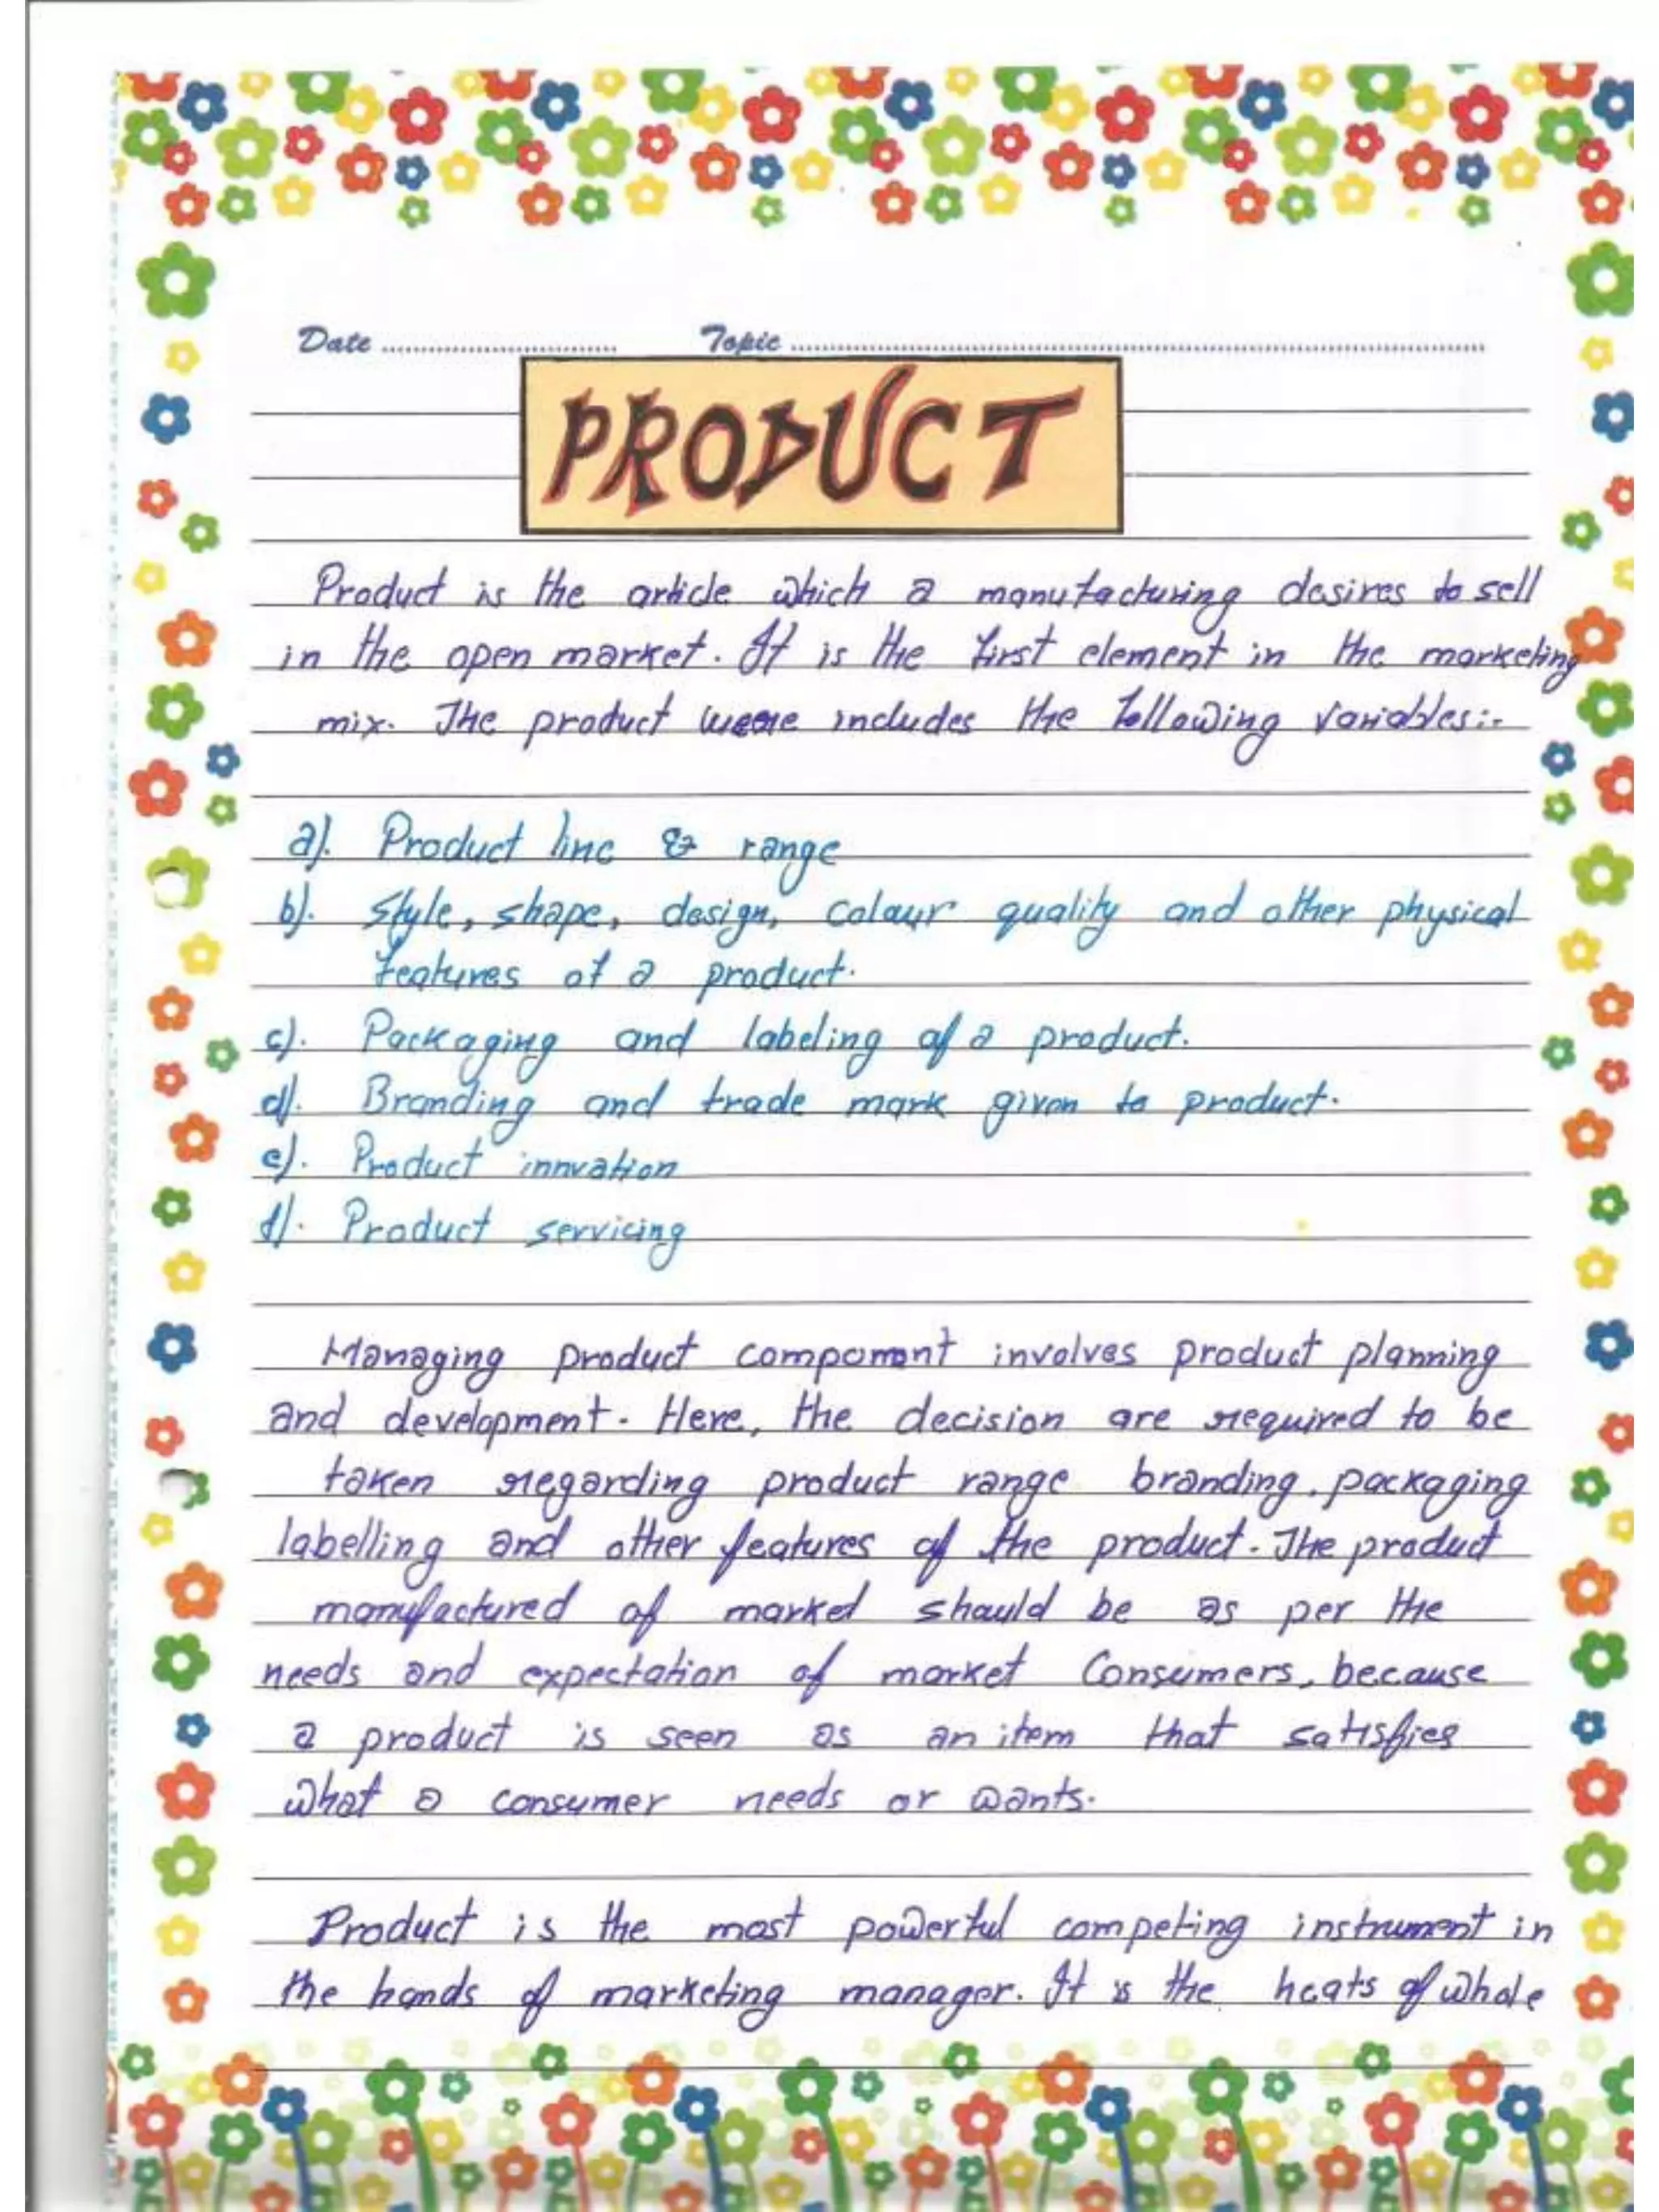 Date Topic
PRODUCT
Product is the article which a manufacturing desires to sell
in the open market. It is the first element in the marketing
mix. The product includes the following variables:-
a). Product line & range
b). Style, shape, design, colour quality and other physical
features of a product.
c). Packaging and labeling of a product.
d). Branding and trade mark given to product.
e). Product innvation
f). Product servicing
Managing product component involves product planning
and development. Here, the decision are required to be
taken regarding product range branding, packaging
labelling and other features of the product. The product
manufactured of market should be as per the
needs and expectation of market Consumers, because
a product is seen as an item that satisfies
what a consumer needs or wants.
Product is the most powerful competing instrument in
the hands of marketing manager. It is the heats of whole